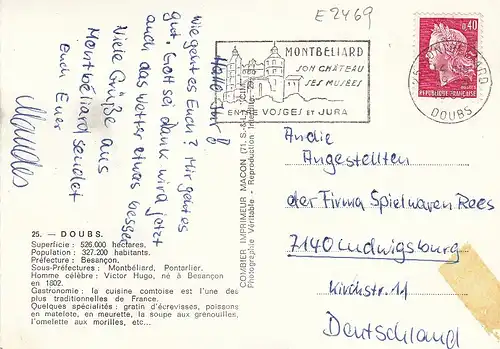 E 2469
Hallo Ihr 8
wie geht es Euch? Mir geht es
gut. Gott sei dank wird jetzt
auch das Wetter etwas besser
Viele Grüße aus
Montbéliard sendet
Euch Euer
MONTBÉLIARD
SON CHÂTEAU
SES MUSÉES
ENTRE VOSGES ET JURA
0,40
REPUBLIQUE FRANÇAISE
25 MONTBELIARD
DOUBS
COMBIER IMPRIMEUR MACON (71. S.-&-L.)
Photographie Véritable - Reproduction Interdite
An die
Angestellten
der Firma Spielwaren Rees
7140 Ludwigsburg
Kirchstr. 11
Deutschland
25. — DOUBS.
Superficie : 526.000 hectares.
Population : 327.200 habitants.
Préfecture : Besançon.
Sous-Préfectures : Montbéliard, Pontarlier.
Homme célèbre : Victor Hugo, né à Besançon
en 1802.
Gastronomie : la cuisine comtoise est l'une des
plus traditionnelles de France.
Quelques spécialités : gratin d'écrevisses, poissons
en matelote, en meurette, la soupe aux grenouilles,
l'omelette aux morilles, etc...